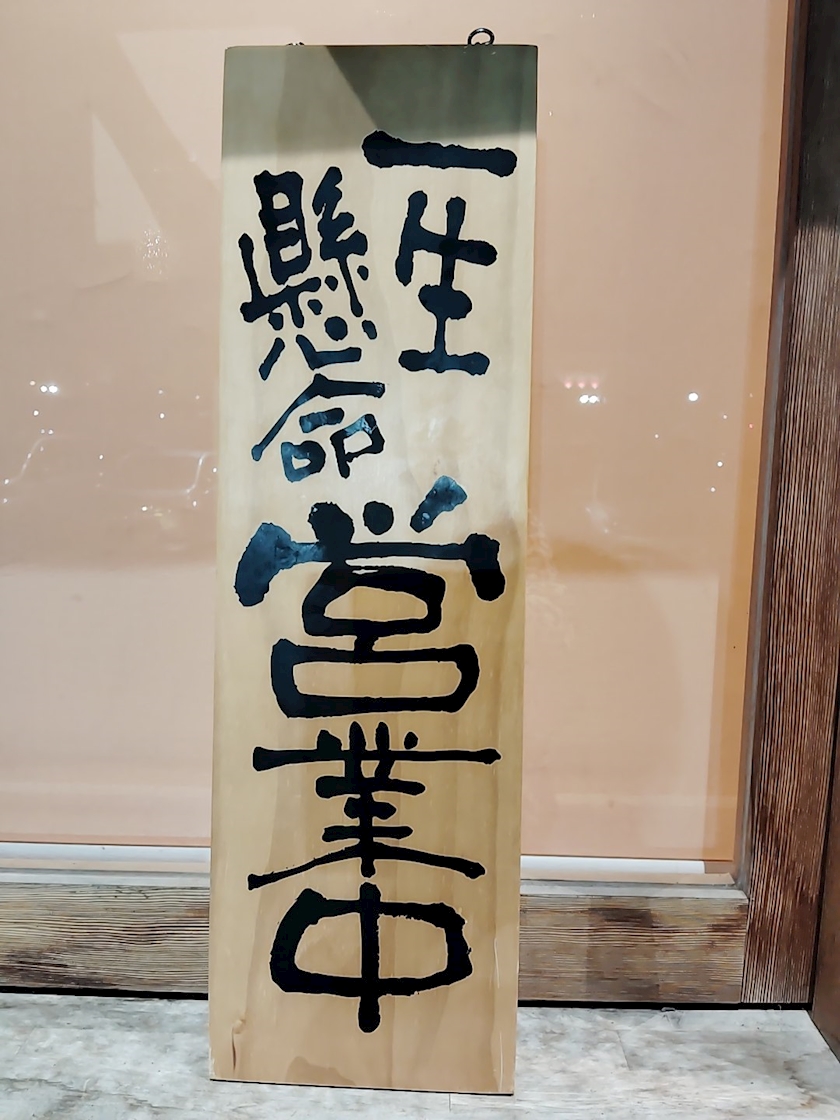 一生
懸命
営業中